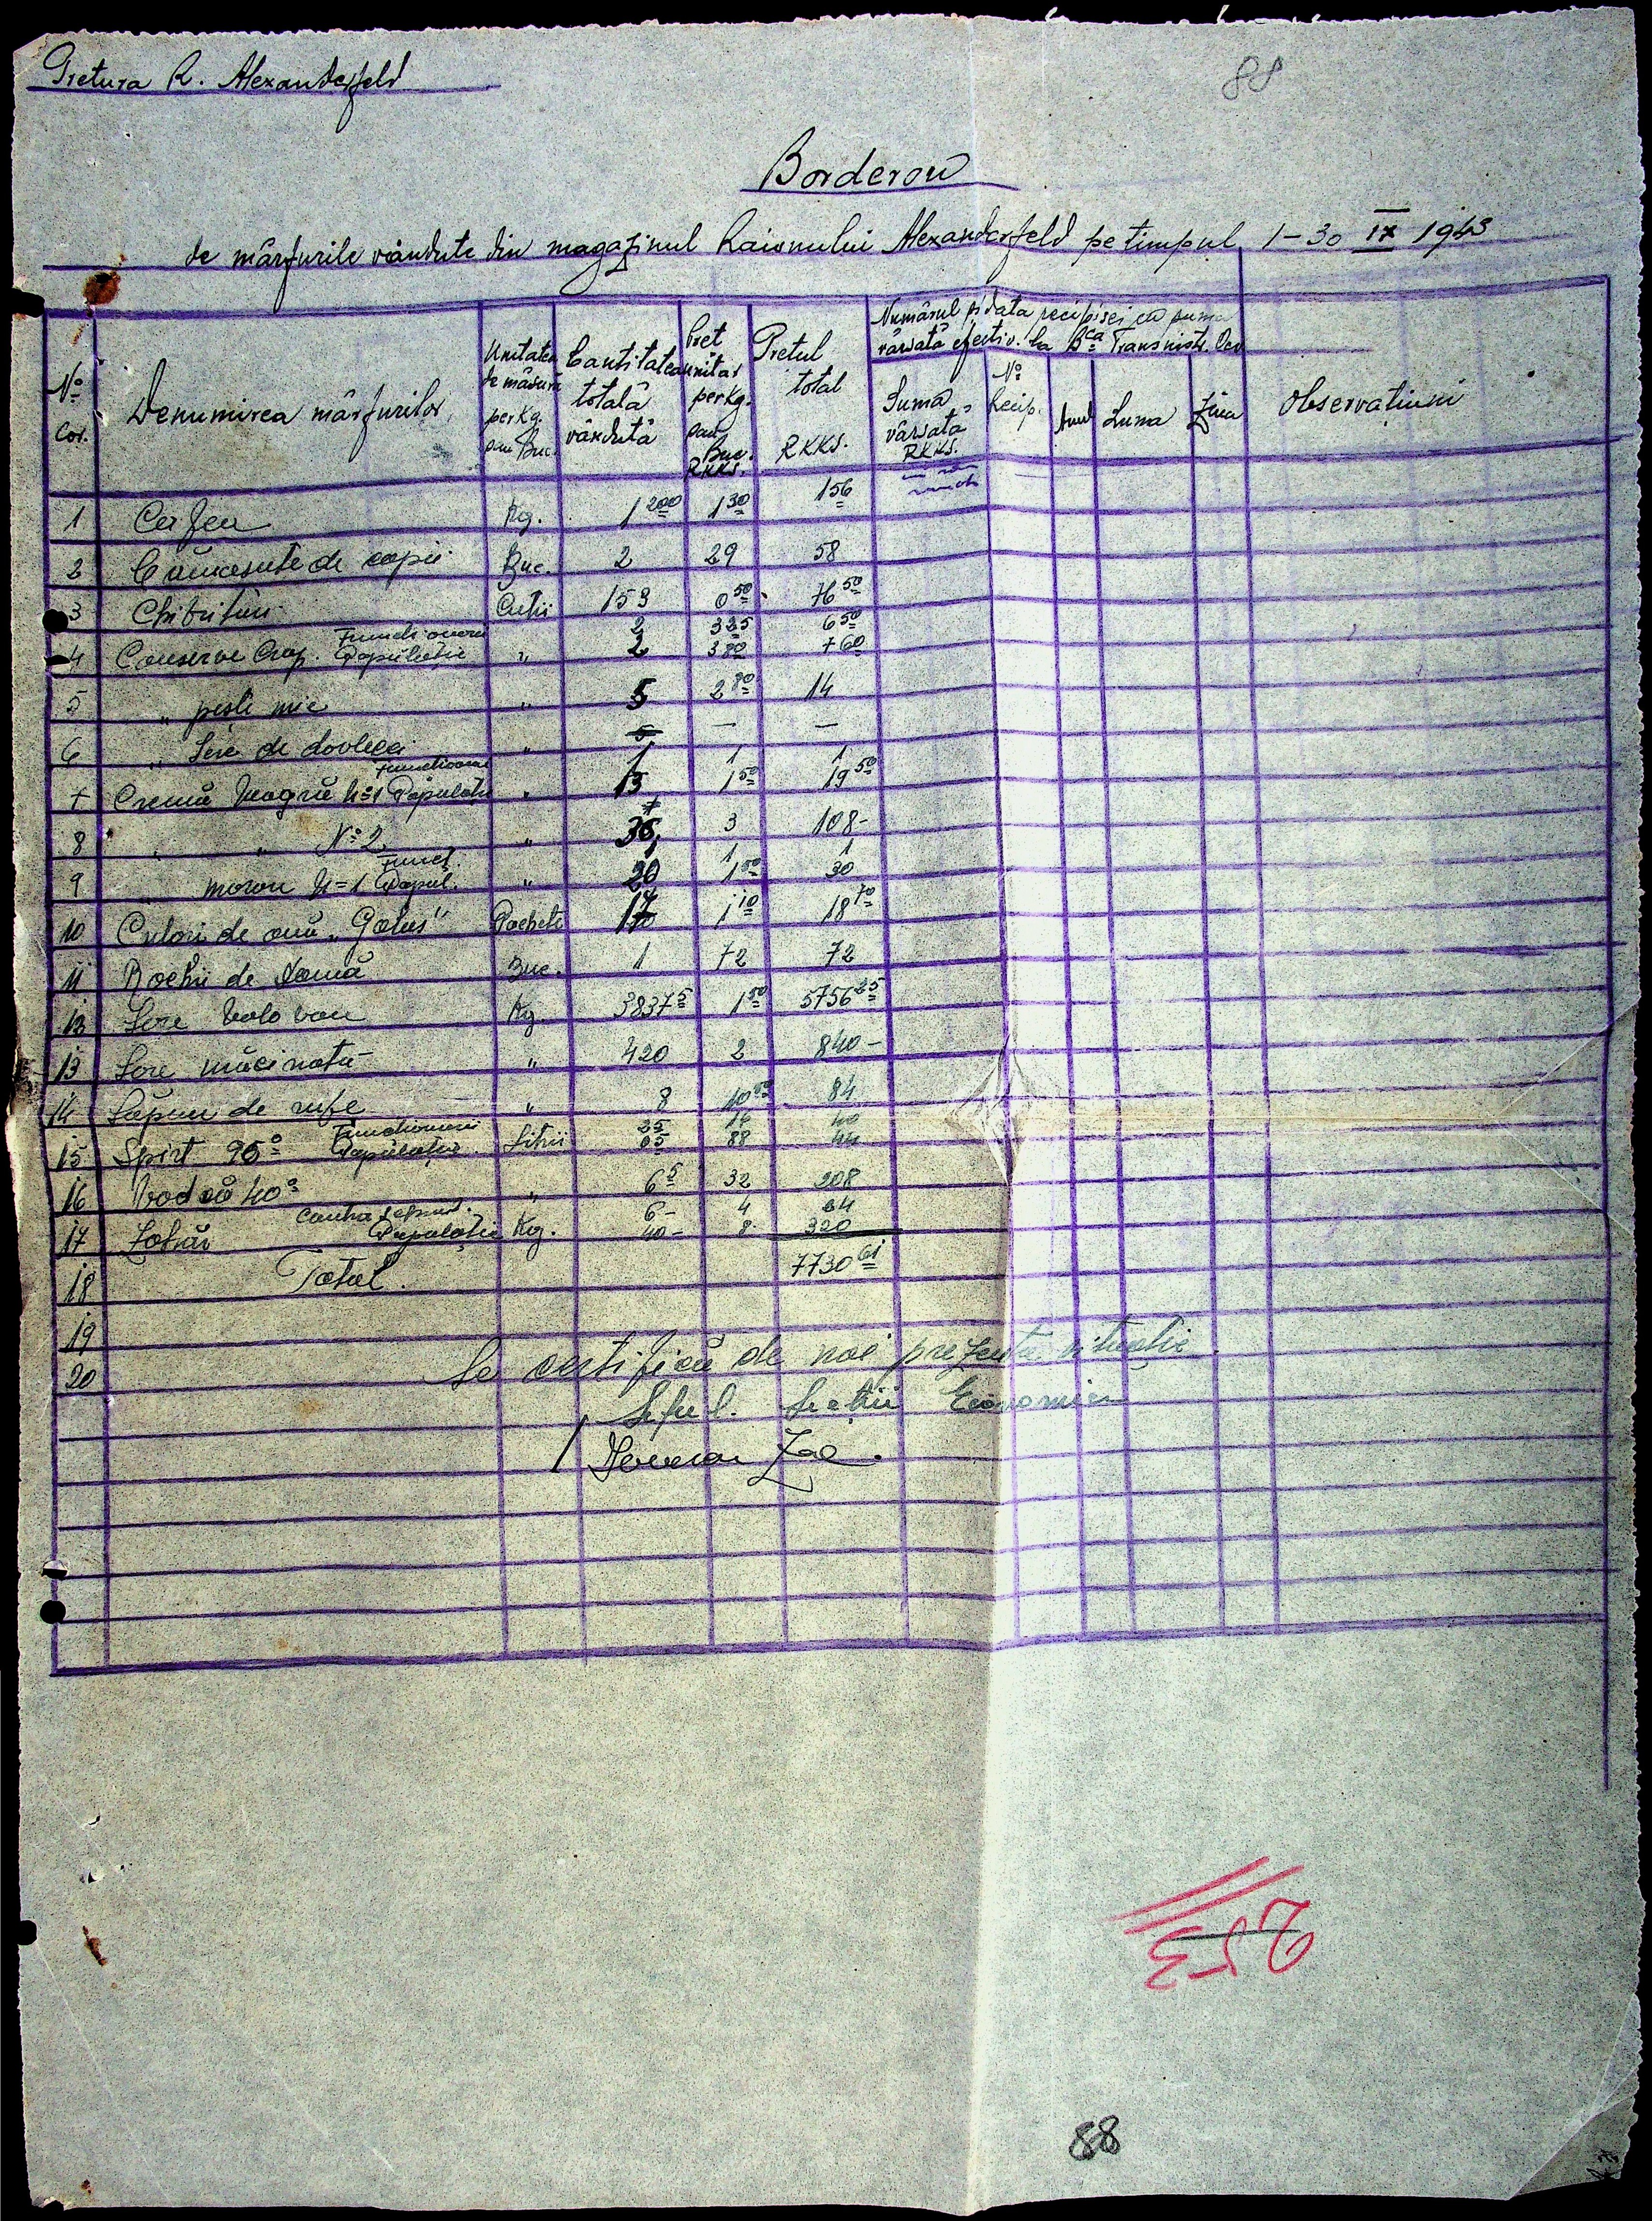 Pretura R. Alexanderfeld
88
Borderou
de mărfurile vândute din magazinul Raionului Alexanderfeld pe timpul 1-30 IX 1943
No Cor. | Denumirea mărfurilor | Unitatea de măsură per Kg. sau Buc. | Cantitatea totală vândută | Preț unitar per Kg. sau Buc. RKKS. | Prețul total RKKS. | Numărul și data recipisei cu suma vărsată efectiv la Bca Transnistr. | Observațiuni
Suma vărsată RKKS. | No Recip. | Anul | Luna | Ziua
1 Kg. 1 200 1 30 1 56
2 Cămesute de copii Buc. 2 29 58
3 Chibrituri Cutii 153 0 50 76 50
Funcționari 2 3 25 6 50
4 Conserve Crap. Populație " 2 3 80 7 60
5 " pește mic " 5 2 80 14
6 " de dovleci " — —
Funcționari 1 1 1
7 Cremă Neagră No 1 Populație " 13 1 50 19 50
8 " " No 2 " 36 3 108-
Funcț. 1 1 1
9 " maron No 1 Popul. " 20 1 50 30
10 Culori de ouă "Galus" Pachete 17 1 10 18 70
11 Rochii de Damă Buc. 1 72 72
12 Sare Kg 3837 5 1 50 5756 25
13 Sare măcinată " 420 2 840-
14 Săpun de rufe " 8 10 50 84
Funcționari 25 16 40
15 Spirt 96° Populație Litri 05 88 44
16 Vodcă 40° " 6 5 32 208
6- 4 24
17 Zahăr Populație Kg. 40- 8 320
18 Total. 7730 61
19
20
Se certifică de noi prezenta situație
Șeful Secției Economice
253
88